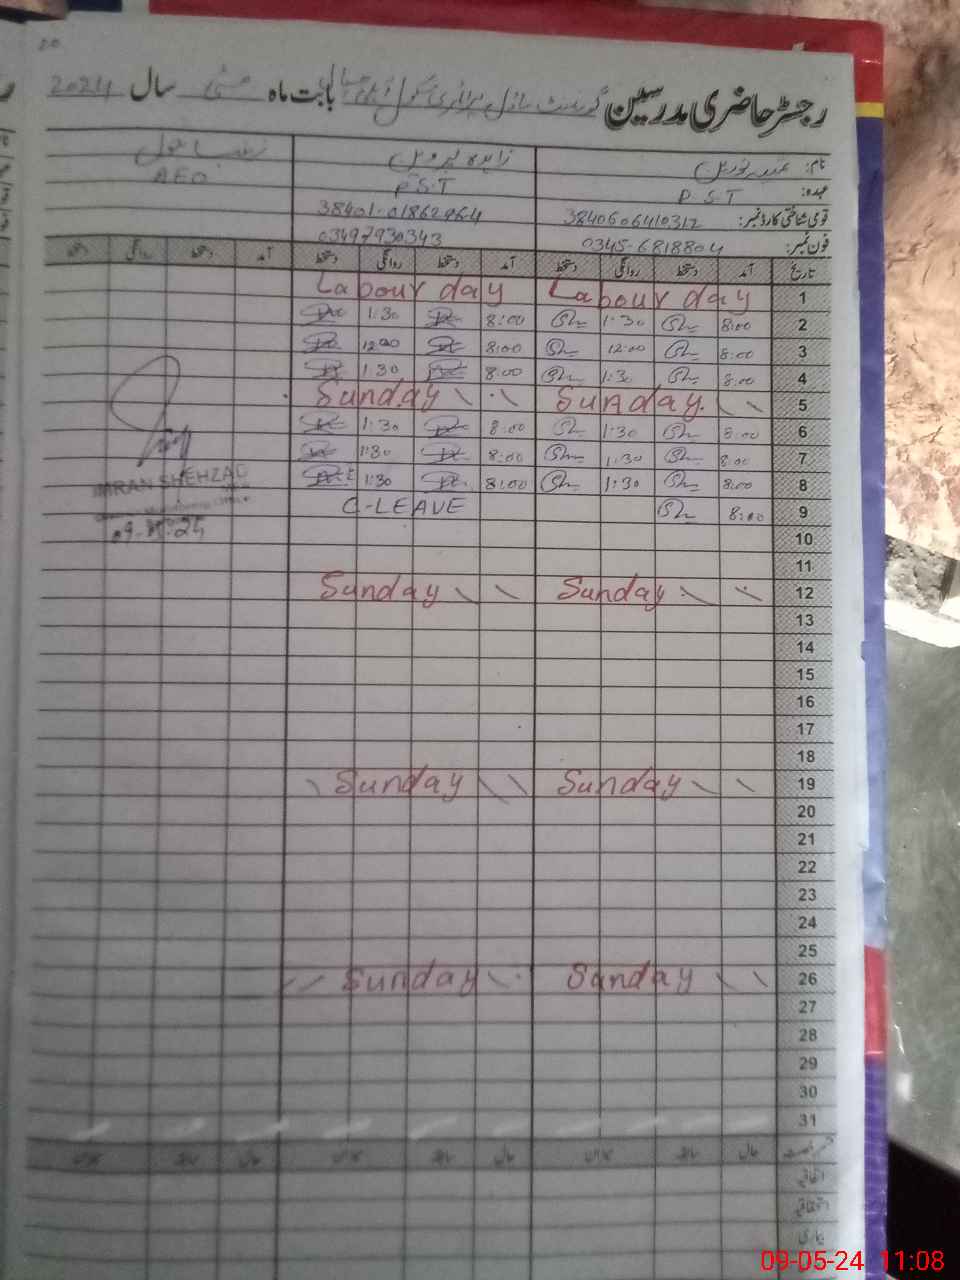 20
رجسٹر حاضری مدرسین گورنمنٹ ماڈل پرائمری سکول بابت ماہ مئی سال 2024
نام: زاہدہ پروین
عہدہ: P.S.T P.S.T AEO
قومی شناختی کارڈ نمبر: 3840606410312 38401-01862964
فون نمبر: 0345-6818804 03497930343
تاریخ آمد دستخط روانگی دستخط آمد دستخط روانگی دستخط آمد دستخط روانگی دستخط
1 Labour day Labour day
2 8:00 1:30 8:00 1:30
3 8:00 12:00 8:00 12:00
4 8:00 1:30 8:00 1:30
5 Sunday Sunday
6 8:00 1:30 8:00 1:30
7 8:00 1:30 8:00 1:30
8 8:00 1:30 8:00 1:30
9 8:00 C-LEAVE
IMRAN SHEHZAD
10
11
12 Sunday Sunday
13
14
15
16
17
18
19 Sunday Sunday
20
21
22
23
24
25
26 Sunday Sunday
27
28
29
30
31
حال سابقہ میزان حال سابقہ میزان حال سابقہ میزان
اتفاقیہ
استحقاقیہ
بیماری
09-05-24 11:08